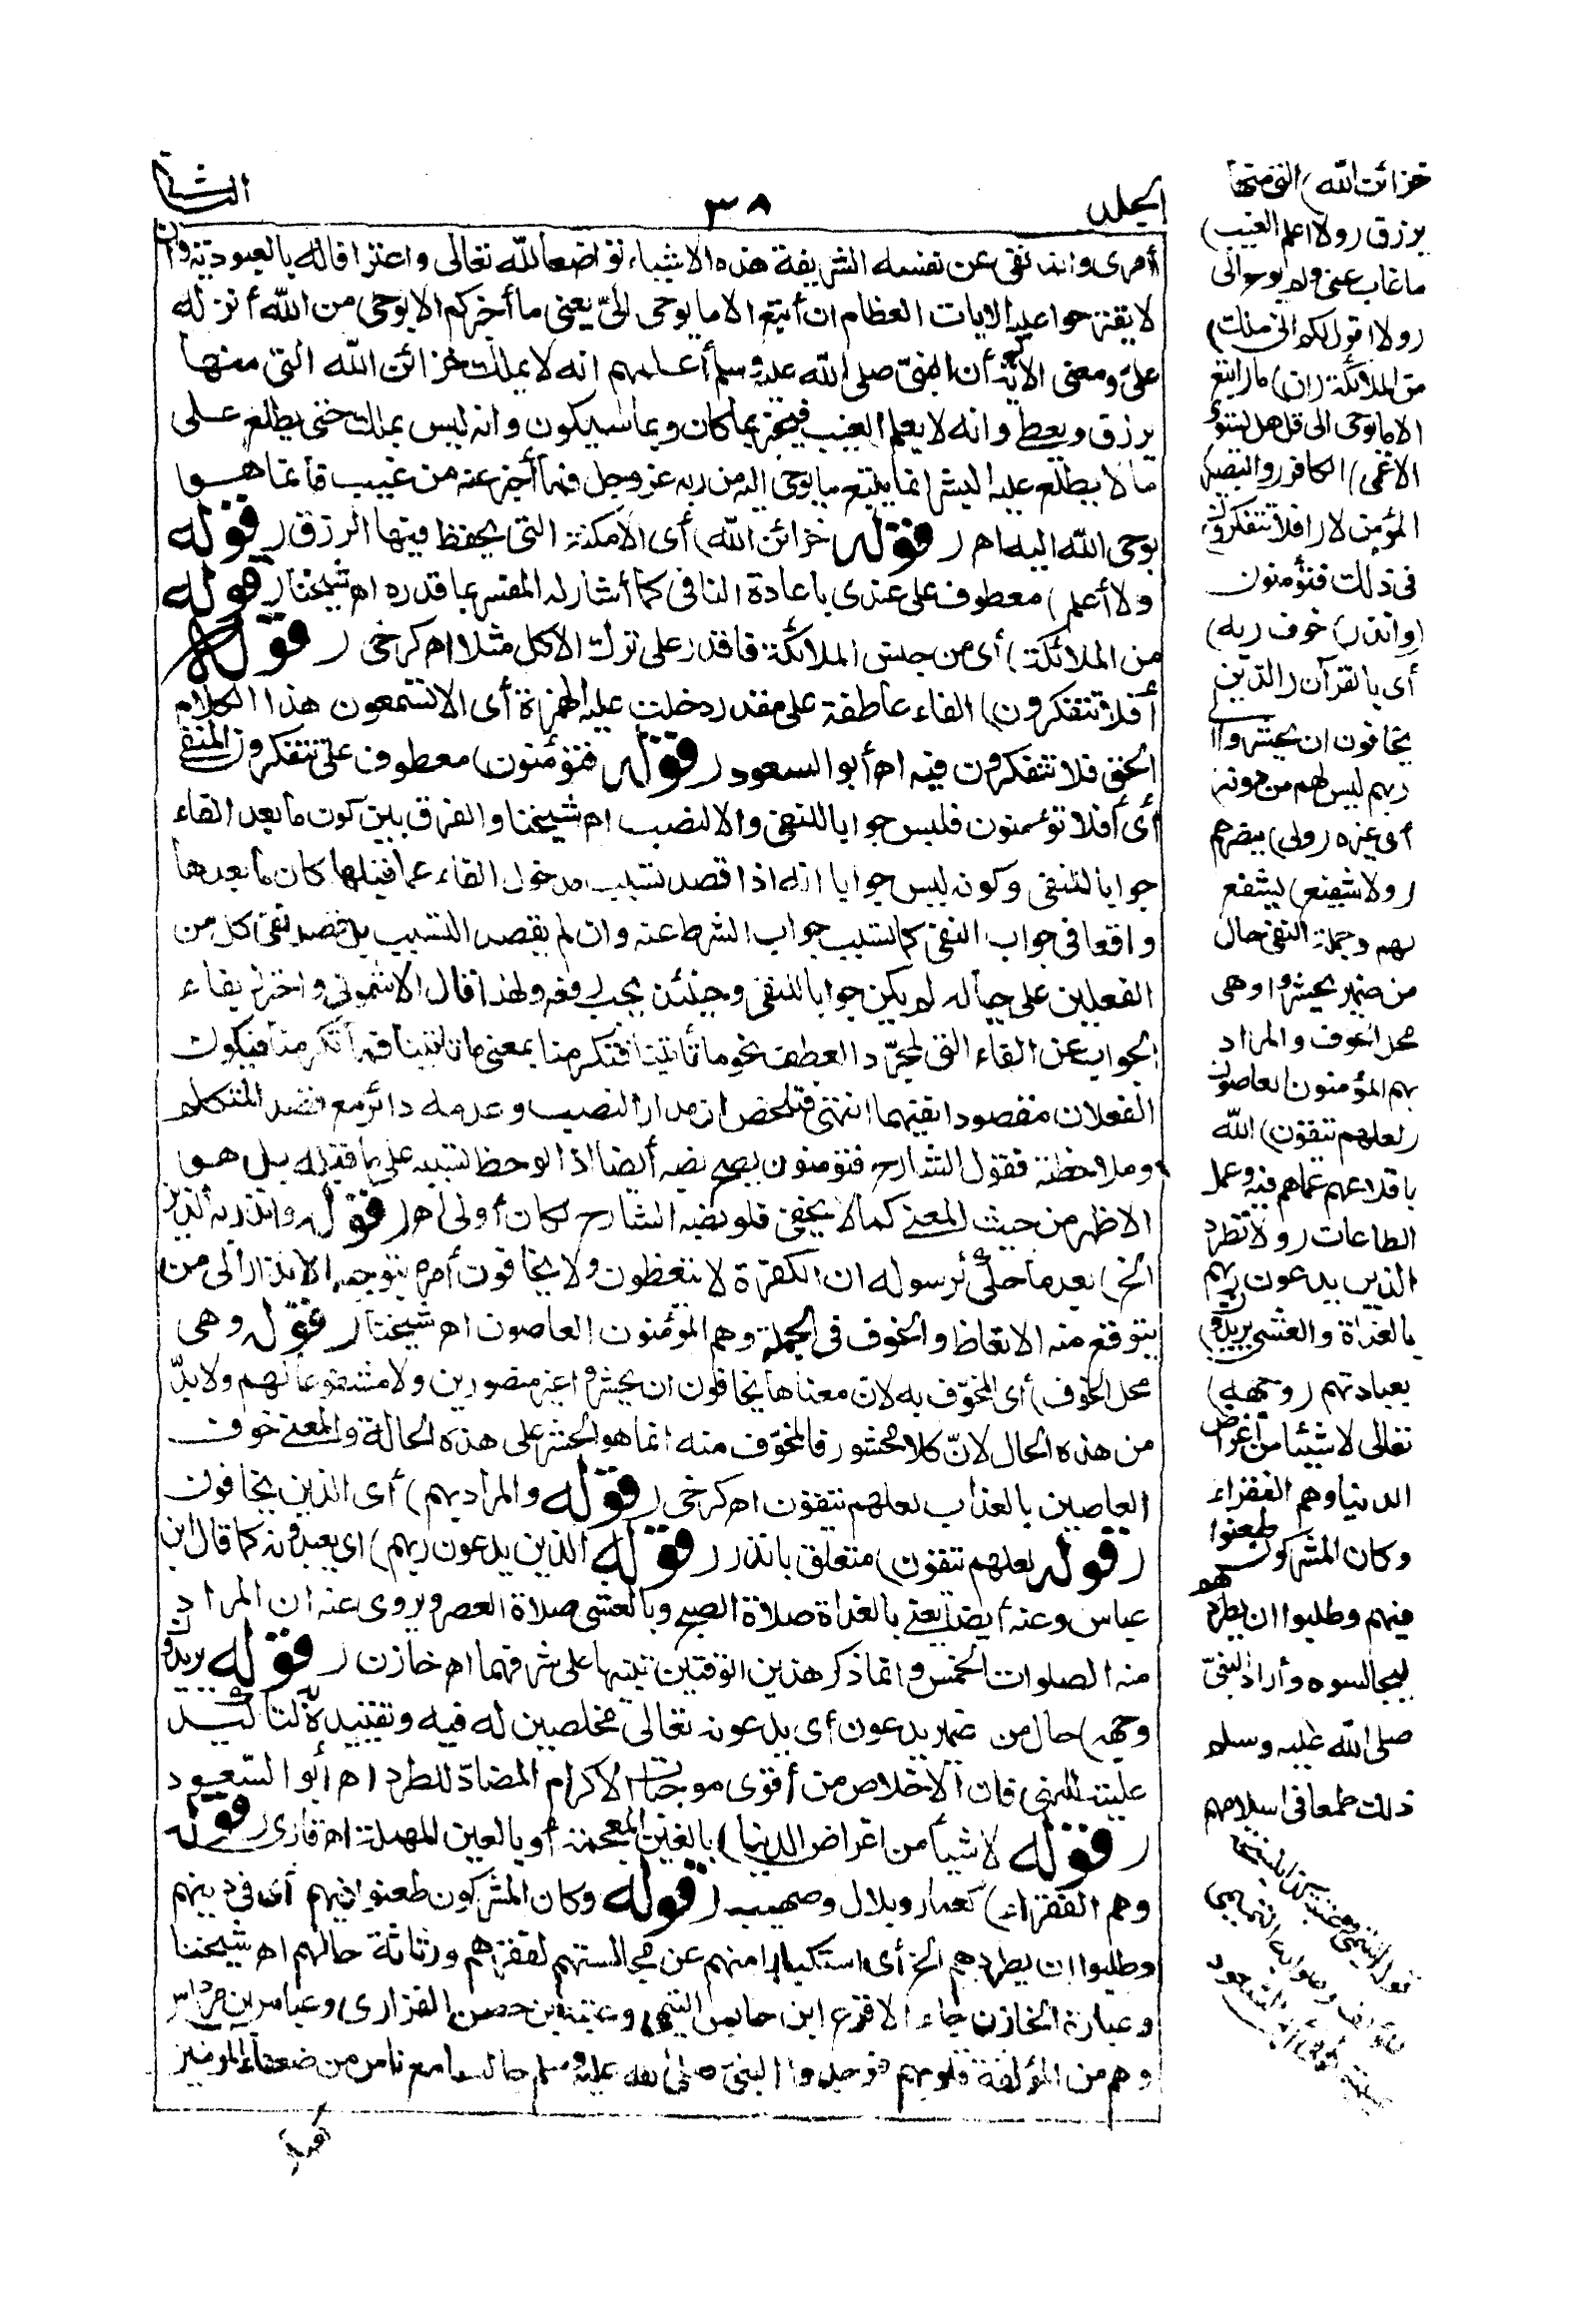 الجلد
٣٨
الثانى
أمرى وانما نفى عن نفسه الشريفة هذه الاشياء تواضعا لله تعالى واعترافا له بالعبودية وان
لا يقترحوا عليه الآيات العظام ان أتبع الا ما يوحى الىّ يعنى ما أخبركم الا بوحى من الله أنزله
علىّ ومعنى الآية أن النبىّ صلى الله عليه وسلم أعلمهم انه لا يملك خزائن الله التى منها
يرزق ويعطى وانه لا يعلم الغيب فيخبر بما كان وبما سيكون وانه ليس بملك حتى يطلع على
ما لا يطلع عليه البشر انما يتبع ما يوحى اليه من ربه عز وجل فما أخبر عنه من غيب فانما هو
بوحى الله اليه اه (قوله خزائن الله) أى الامكنة التى يحفظ فيها الرزق (قوله
ولا أعلم) معطوف على عندى باعادة النافى كما أشار له المفسر بما قدره اه شيخنا (قوله
من الملائكة) أى من جنس الملائكة فاقدر على ترك الاكل مثلا اه كرخى (قوله
أفلا تتفكرون) الفاء عاطفة على مقدر دخلت عليه الهمزة أى ألا تسمعون هذا الكلام
الحق فلا تتفكرون فيه اه أبو السعود (قوله فتؤمنون) معطوف على تتفكرون المنفى
أى أفلا تؤمنون فليس جوابا للنفى والا لنصب اه شيخنا والفرق بين كون ما بعد الفاء
جوابا للنفى وكونه ليس جوابا انه اذا قصد تسبب مدخول الفاء عما قبلها كان ما بعدها
واقعا فى جواب النفى كما تسبب جواب الشرط عنه وان لم يقصد التسبب بل قصد نفى كل من
الفعلين على حياله لم يكن جوابا للنفى وحينئذ يجب رفعه ولهذا قال الاشمونى واحترز بفاء
الجواب عن الفاء التى لمجرّد العطف نحو ما تأتينا فتكرمنا بمعنى ما تأتينا فما تكرمنا فيكون
الفعلان مقصودا نفيهما انتهى فتلخص ان مدار النصب وعدمه دائر مع قصد المتكلم
وملاحظته فقول الشارح فتؤمنون يصح نصبه أيضا اذا لوحظ تسببه على ما قبله بل هو
الاظهر من حيث المعنى كما لا يخفى فلو نصبه الشارح لكان أولى اه (قوله وأنذر به الذين
الخ) بعد ما حكى لرسوله ان الكفرة لا يتعظون ولا يخافون أمره بتوجيه الانذار الى من
يتوقع منه الاتعاظ والخوف فى الجملة وهم المؤمنون العاصون اه شيخنا (قوله وهى
محل الخوف) أى المخوّف به لان معناها يخافون ان يحشروا غير منصورين ولا مشفوعا لهم ولا بدّ
من هذه الحال لانّ كلا محشور فالمخوّف منه انما هو الحشر على هذه الحالة والمعنى خوف
العاصين بالعذاب لعلهم يتقون اه كرخى (قوله والمراد بهم) أى الذين يخافون
(قوله لعلهم يتقون) متعلق بأنذر (قوله الذين يدعون ربهم) أى يعبدونه كما قال ابن
عباس وعنه أيضا يعنى بالغداة صلاة الصبح وبالعشى صلاة العصر ويروى عنه ان المراد
منه الصلوات الخمس وانما ذكر هذين الوقتين تنبيها على شرفهما اه خازن (قوله يريدون
وجهه) حال من ضمير يدعون أى يدعونه تعالى مخلصين له فيه وتقييده لتأكيد
عليته للنهى فان الاخلاص من أقوى موجبات الاكرام المضادّ للطرد اه أبو السعود
(قوله لا شيأ من اغراض الدنيا) بالغين المعجمة أو بالعين المهملة اه قارى (قوله
وهم الفقراء) كعمار وبلال وصهيب (قوله وكان المشركون طعنوا فيهم أى فى دينهم
وطلبوا ان يطردهم الخ أى استكبارا منهم عن مجالستهم لفقرهم ورثاثة حالهم اه شيخنا
وعبارة الخازن جاء الاقرع ابن حابس التميمى وعيينة بن حصن الفزارى وعباس بن مرداس
وهم من المؤلفة قلوبهم فوجدوا النبىّ صلى الله عليه وسلم جالسا مع ناس من ضعفاء المؤمنين
خزائن الله) التى منها
يرزق (ولا اعلم الغيب)
ما غاب عنى ولم يوح الى
(ولا اقول لكم انى ملك)
من الملائكة (ان) ما (اتبع
الا ما يوحى الى قل هل يستوى
الاعمى) الكافر (والبصير)
المؤمن لا (افلا تتفكرون)
فى ذلك فتؤمنون
(وانذر) خوف (به)
أى بالقرآن (الذين
يخافون ان يحشروا الى
ربهم ليس لهم من دونه)
أى غيره (ولى) ينصرهم
(ولا شفيع) يشفع
لهم وجملة النفى حال
من ضمير يحشروا وهى
محل الخوف والمراد
بهم المؤمنون العاصون
(لعلهم يتقون) الله
باقلاعهم عما هم فيه وعمل
الطاعات (ولا تطرد
الذين يدعون ربهم
بالغداة والعشى يريدون)
بعبادتهم (وجهه)
تعالى لا شيئا من أغراض
الدنيا وهم الفقراء
وكان المشركون طعنوا
فيهم وطلبوا ان يطردهم
ليجالسوه وأراد النبىّ
صلى الله عليه وسلم
ذلك طمعا فى اسلامهم